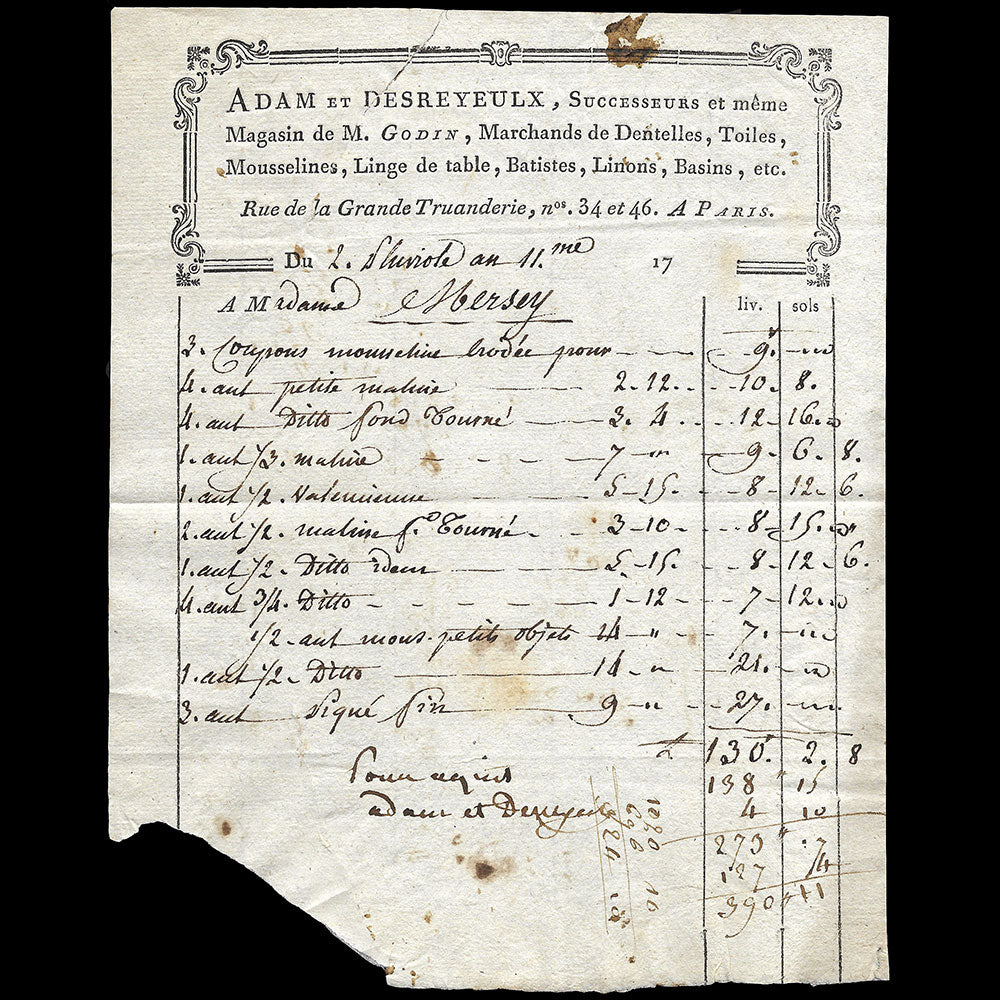 ADAM ET DESREYEULX, SUCCESSEURS et même
Magasin de M. GODIN, Marchands de Dentelles, Toiles,
Mousselines, Linge de table, Batistes, Linons, Basins, etc.
Rue de la Grande Truanderie, nos. 34 et 46. A PARIS.
Du 2. Pluviose an 11.me 17
A Madame Mersey liv. sols
3. Coupons mousseline brodée pour 9. -"
4. aut petite maline 2. 12. 10. 8.
4. aut Ditto fond Tourné 3. 4. 12 - 16. "
1. aut 1/3. maline 7 - " 9. 6. 8.
1. aut 1/2. Valencienne 5 - 15. 8 - 12. 6.
2. aut 1/2. maline fd. Tourné 3 - 10 8 - 15. "
1. aut 1/2 - Ditto idem 5. - 15. 8 - 12 - 6.
4. aut 3/4. Ditto 1 - 12 - 7 - 12. "
1/2 - aut mous. petits objets 14 - " 7. - "
1. aut 1/2 - Ditto 14 - " 21. - "
3. aut Piqué fin 9 - " 27. - "
130. 2. 8
Pour acquit 138 " 15
adam et 4 10
273 " 7
127 4
390 11